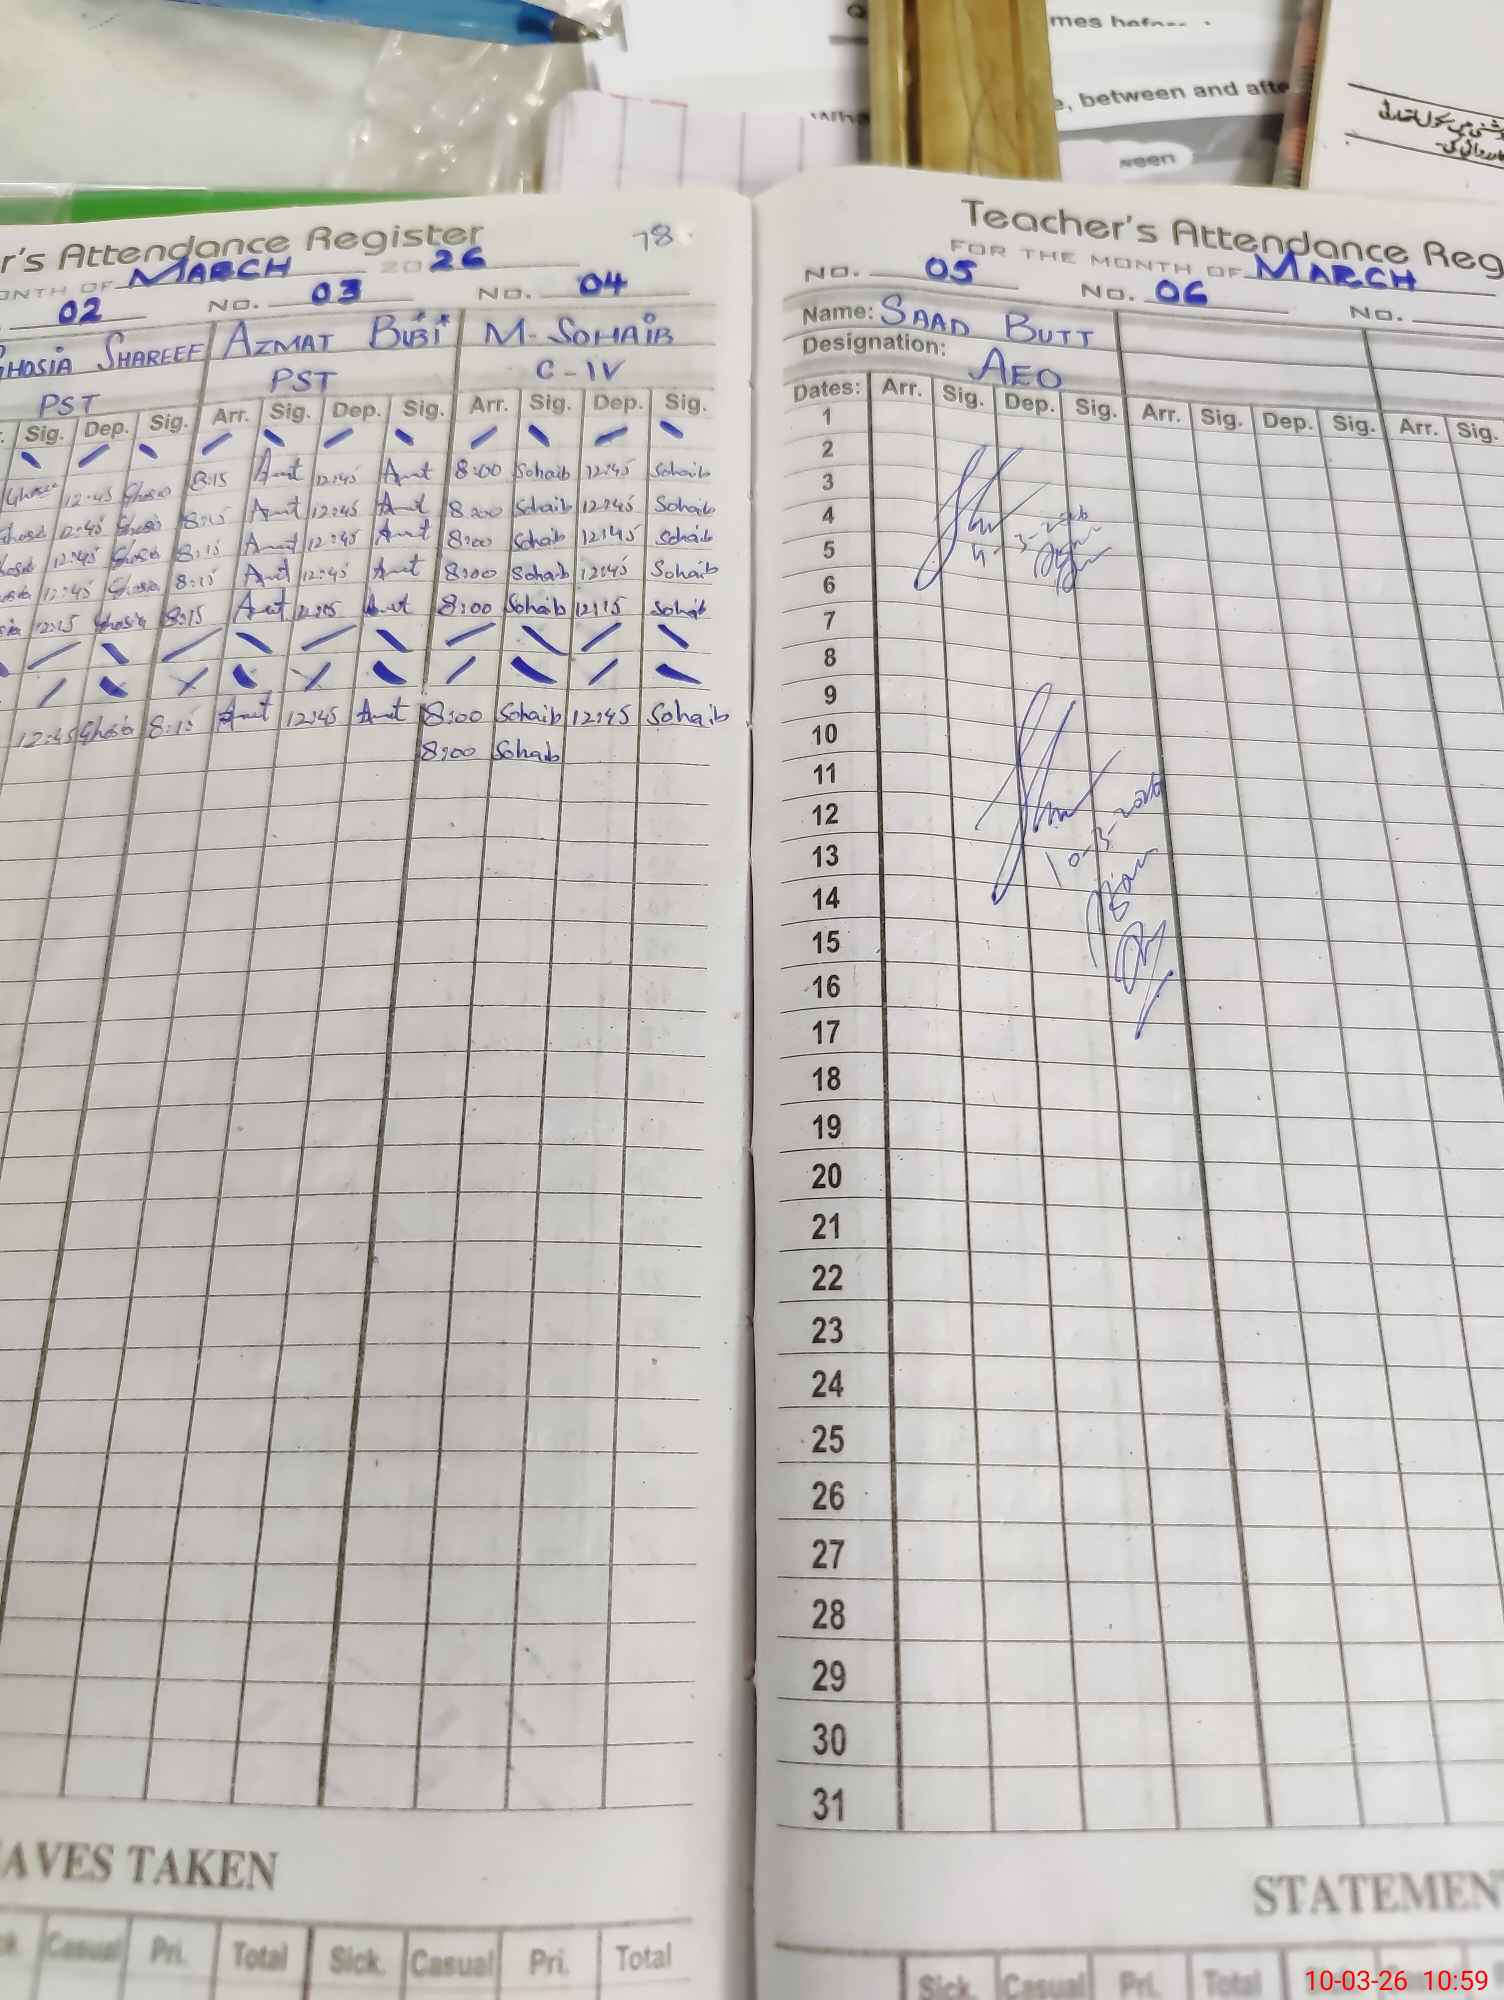 mes before
e, between and afte
ween
r's Attendance Register 78
ONTH OF MARCH 2026
02 NO. 03 NO. 04
GHOSIA SHAREEF AZMAT BIBI M. SOHAIB
PST PST C-IV
Sig. Dep. Sig. Arr. Sig. Dep. Sig. Arr. Sig. Dep. Sig.
12:45 Ghosia 8:15 Amt 12:45 Amt 8:00 Sohaib 12:45 Sohaib
12:45 Ghosia 8:15 Amt 12:45 Amt 8:00 Sohaib 12:45 Sohaib
12:45 Ghosia 8:15 Amt 12:45 Amt 8:00 Sohaib 12:45 Sohaib
12:45 Ghosia 8:15 Amt 12:45 Amt 8:00 Sohaib 12:45 Sohaib
12:15 Ghosia 8:15 Amt 12:15 Amt 8:00 Sohaib 12:15 Sohaib
12:45 Ghosia 8:15 Amt 12:45 Amt 8:00 Sohaib 12:45 Sohaib
8:00 Sohaib
AVES TAKEN
Casual Pri. Total Sick. Casual Pri. Total
Teacher's Attendance Reg
FOR THE MONTH OF MARCH
NO. 05 NO. 06 NO.
Name: SAAD BUTT
Designation: AEO
Dates: Arr. Sig. Dep. Sig. Arr. Sig. Dep. Sig. Arr. Sig.
1
2
3
4
4-3-2026
5
6
7
8
9
10
11
12
10-3-2026
13
14
15
16
17
18
19
20
21
22
23
24
25
26
27
28
29
30
31
STATEMEN
Sick. Casual Pri. Total
10-03-26 10:59